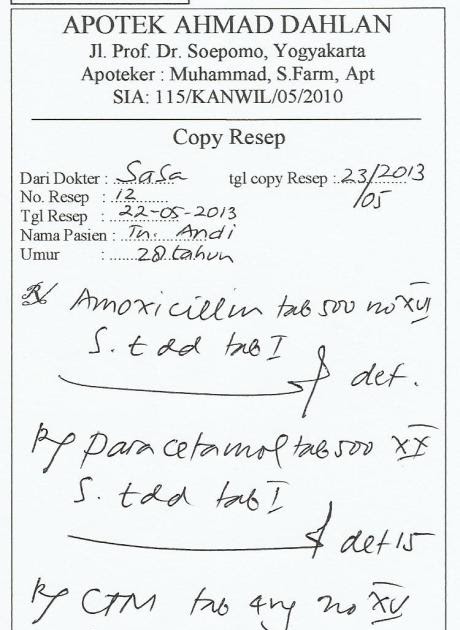 APOTEK AHMAD DAHLAN
Jl. Prof. Dr. Soepomo, Yogyakarta
Apoteker : Muhammad, S.Farm, Apt
SIA: 115/KANWIL/05/2010
Copy Resep
Dari Dokter : Sasa tgl copy Resep : 23/05/2013
No. Resep : 12
Tgl Resep : 22-05-2013
Nama Pasien : Tn. Andi
Umur : 28 tahun
R/ Amoxicillin tab 500 no XVI
S. t dd tab I
det.
R/ Paracetamol tab 500 XX
S. t dd tab I
det 15
R/ CTM tab 4mg no XV